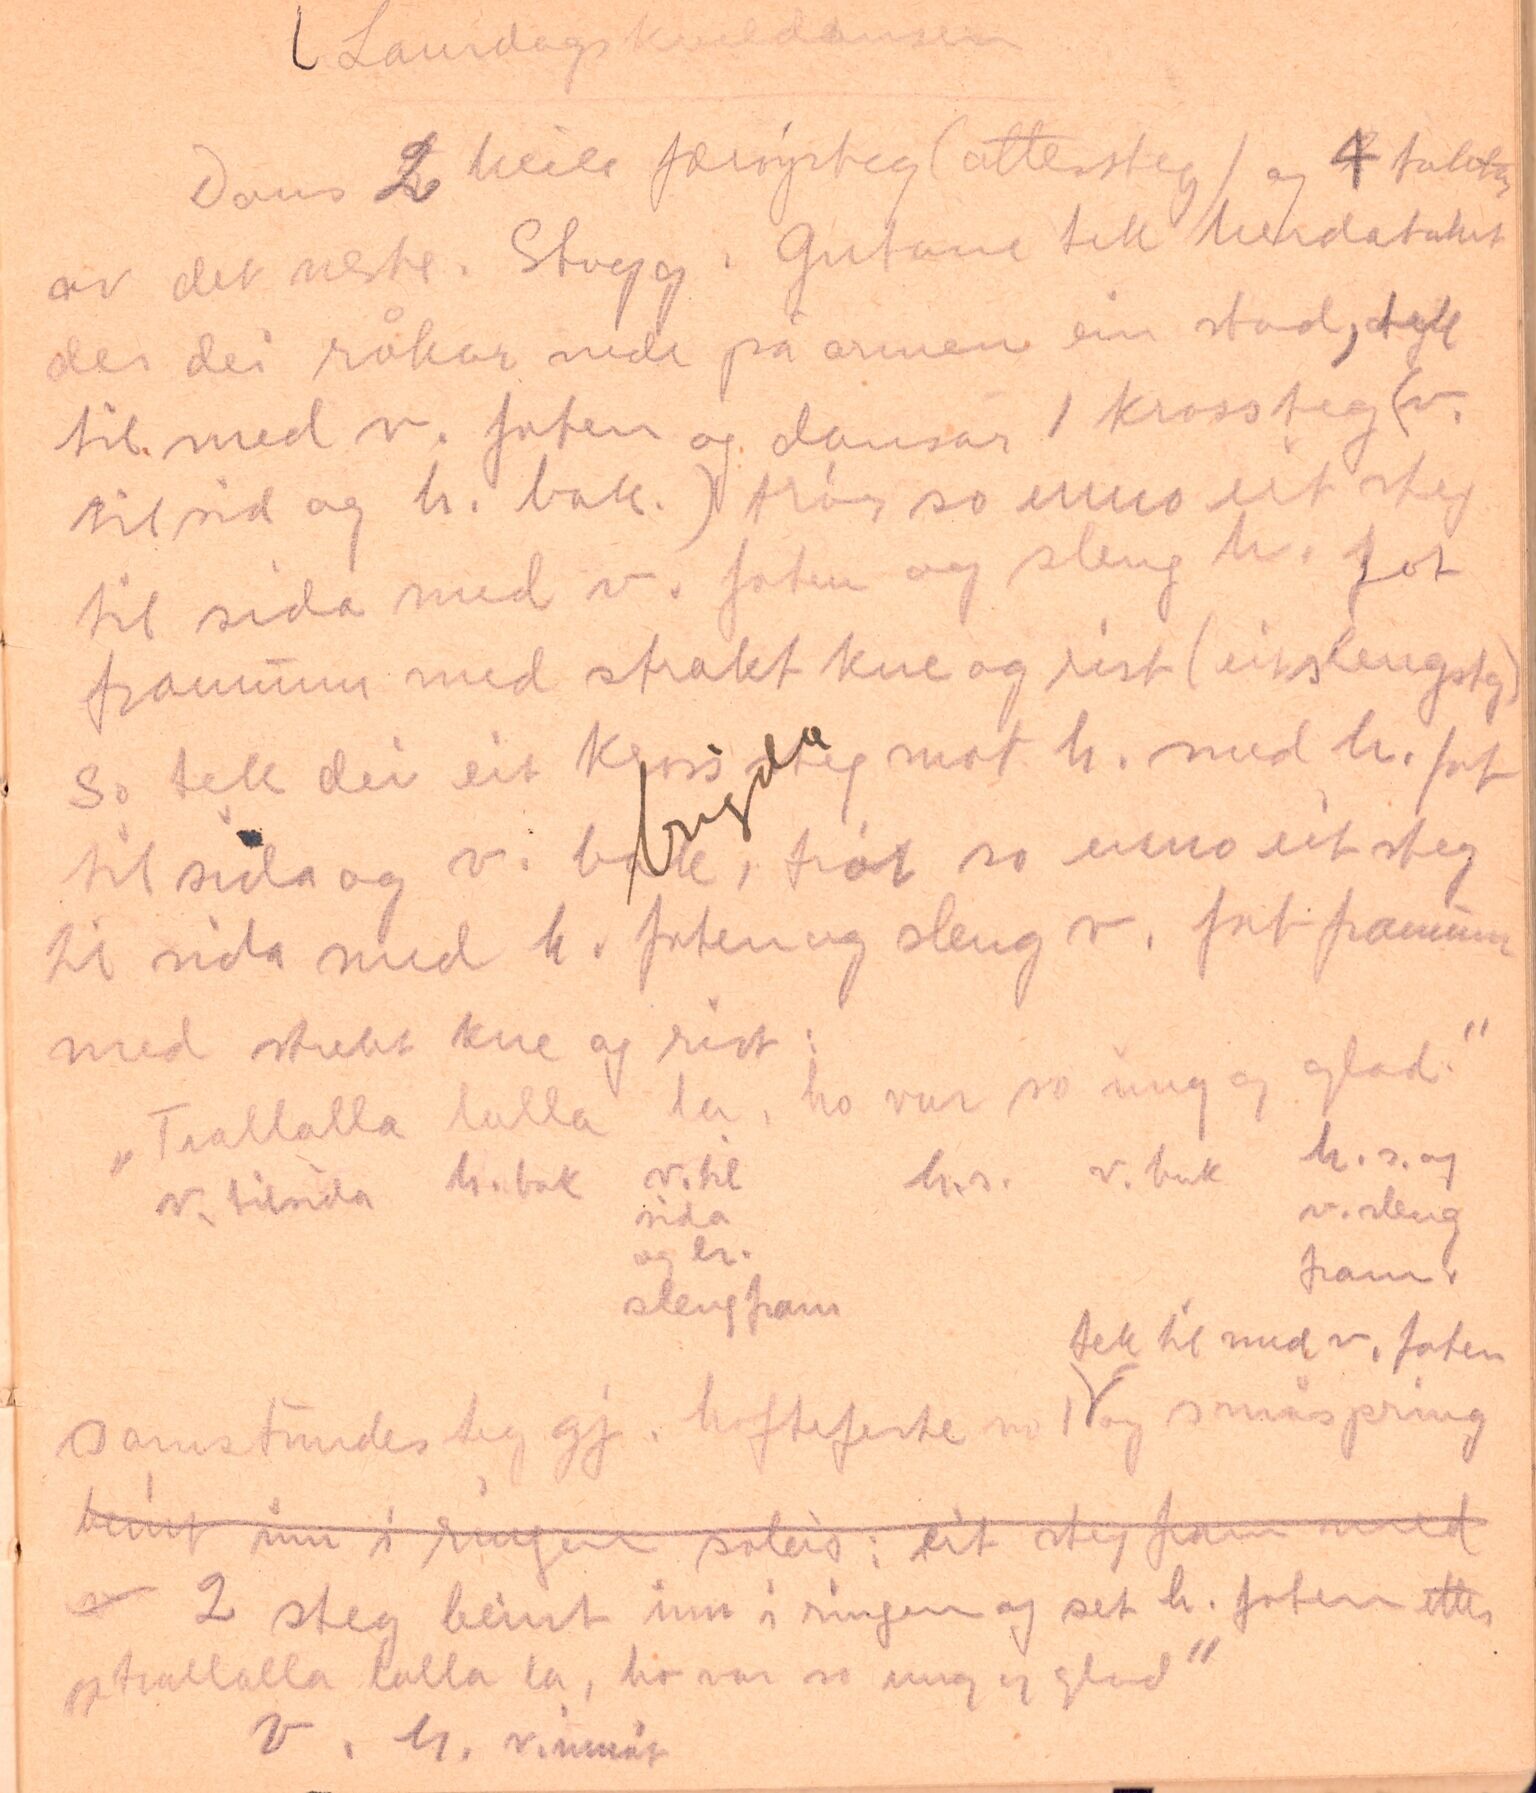 Laurdagskvelddansen
Dans 2 heile færøysteg (attersteg) og 4 taktar
av det neste. Stogg. Gutane tek herdataket
der dei råkar nede på armen ein stad, tek
til med v. foten og dansar 1 krossteg (v.
til sid og h. bak.) trør so enno eit steg
til sida med v. foten og sleng h. fot
framum med strakt kne og rist (eit slengsteg)
So tek dei eit kross steg mot h. med h. fot
bryda
til sida og v. bak, trør so enno eit steg
til sida med h. foten og sleng v. fot framum
med strekt kne og rist:
„Trallalla lalla la, ho var so ung og glad."
v. til sida h. bak v. til h. s. v. bak h. s. og
sida v. sleng
og h. fram.
sleng fram
tek til med v. foten
Samstundes teg gj. hoftefeste no og småspring
beint inn i ringen soleis: eit steg fram med
v 2 steg beint inn i ringen og set h. foten etter
„trallalla lalla la, ho var so ung og glad"
v. h. v. innåt